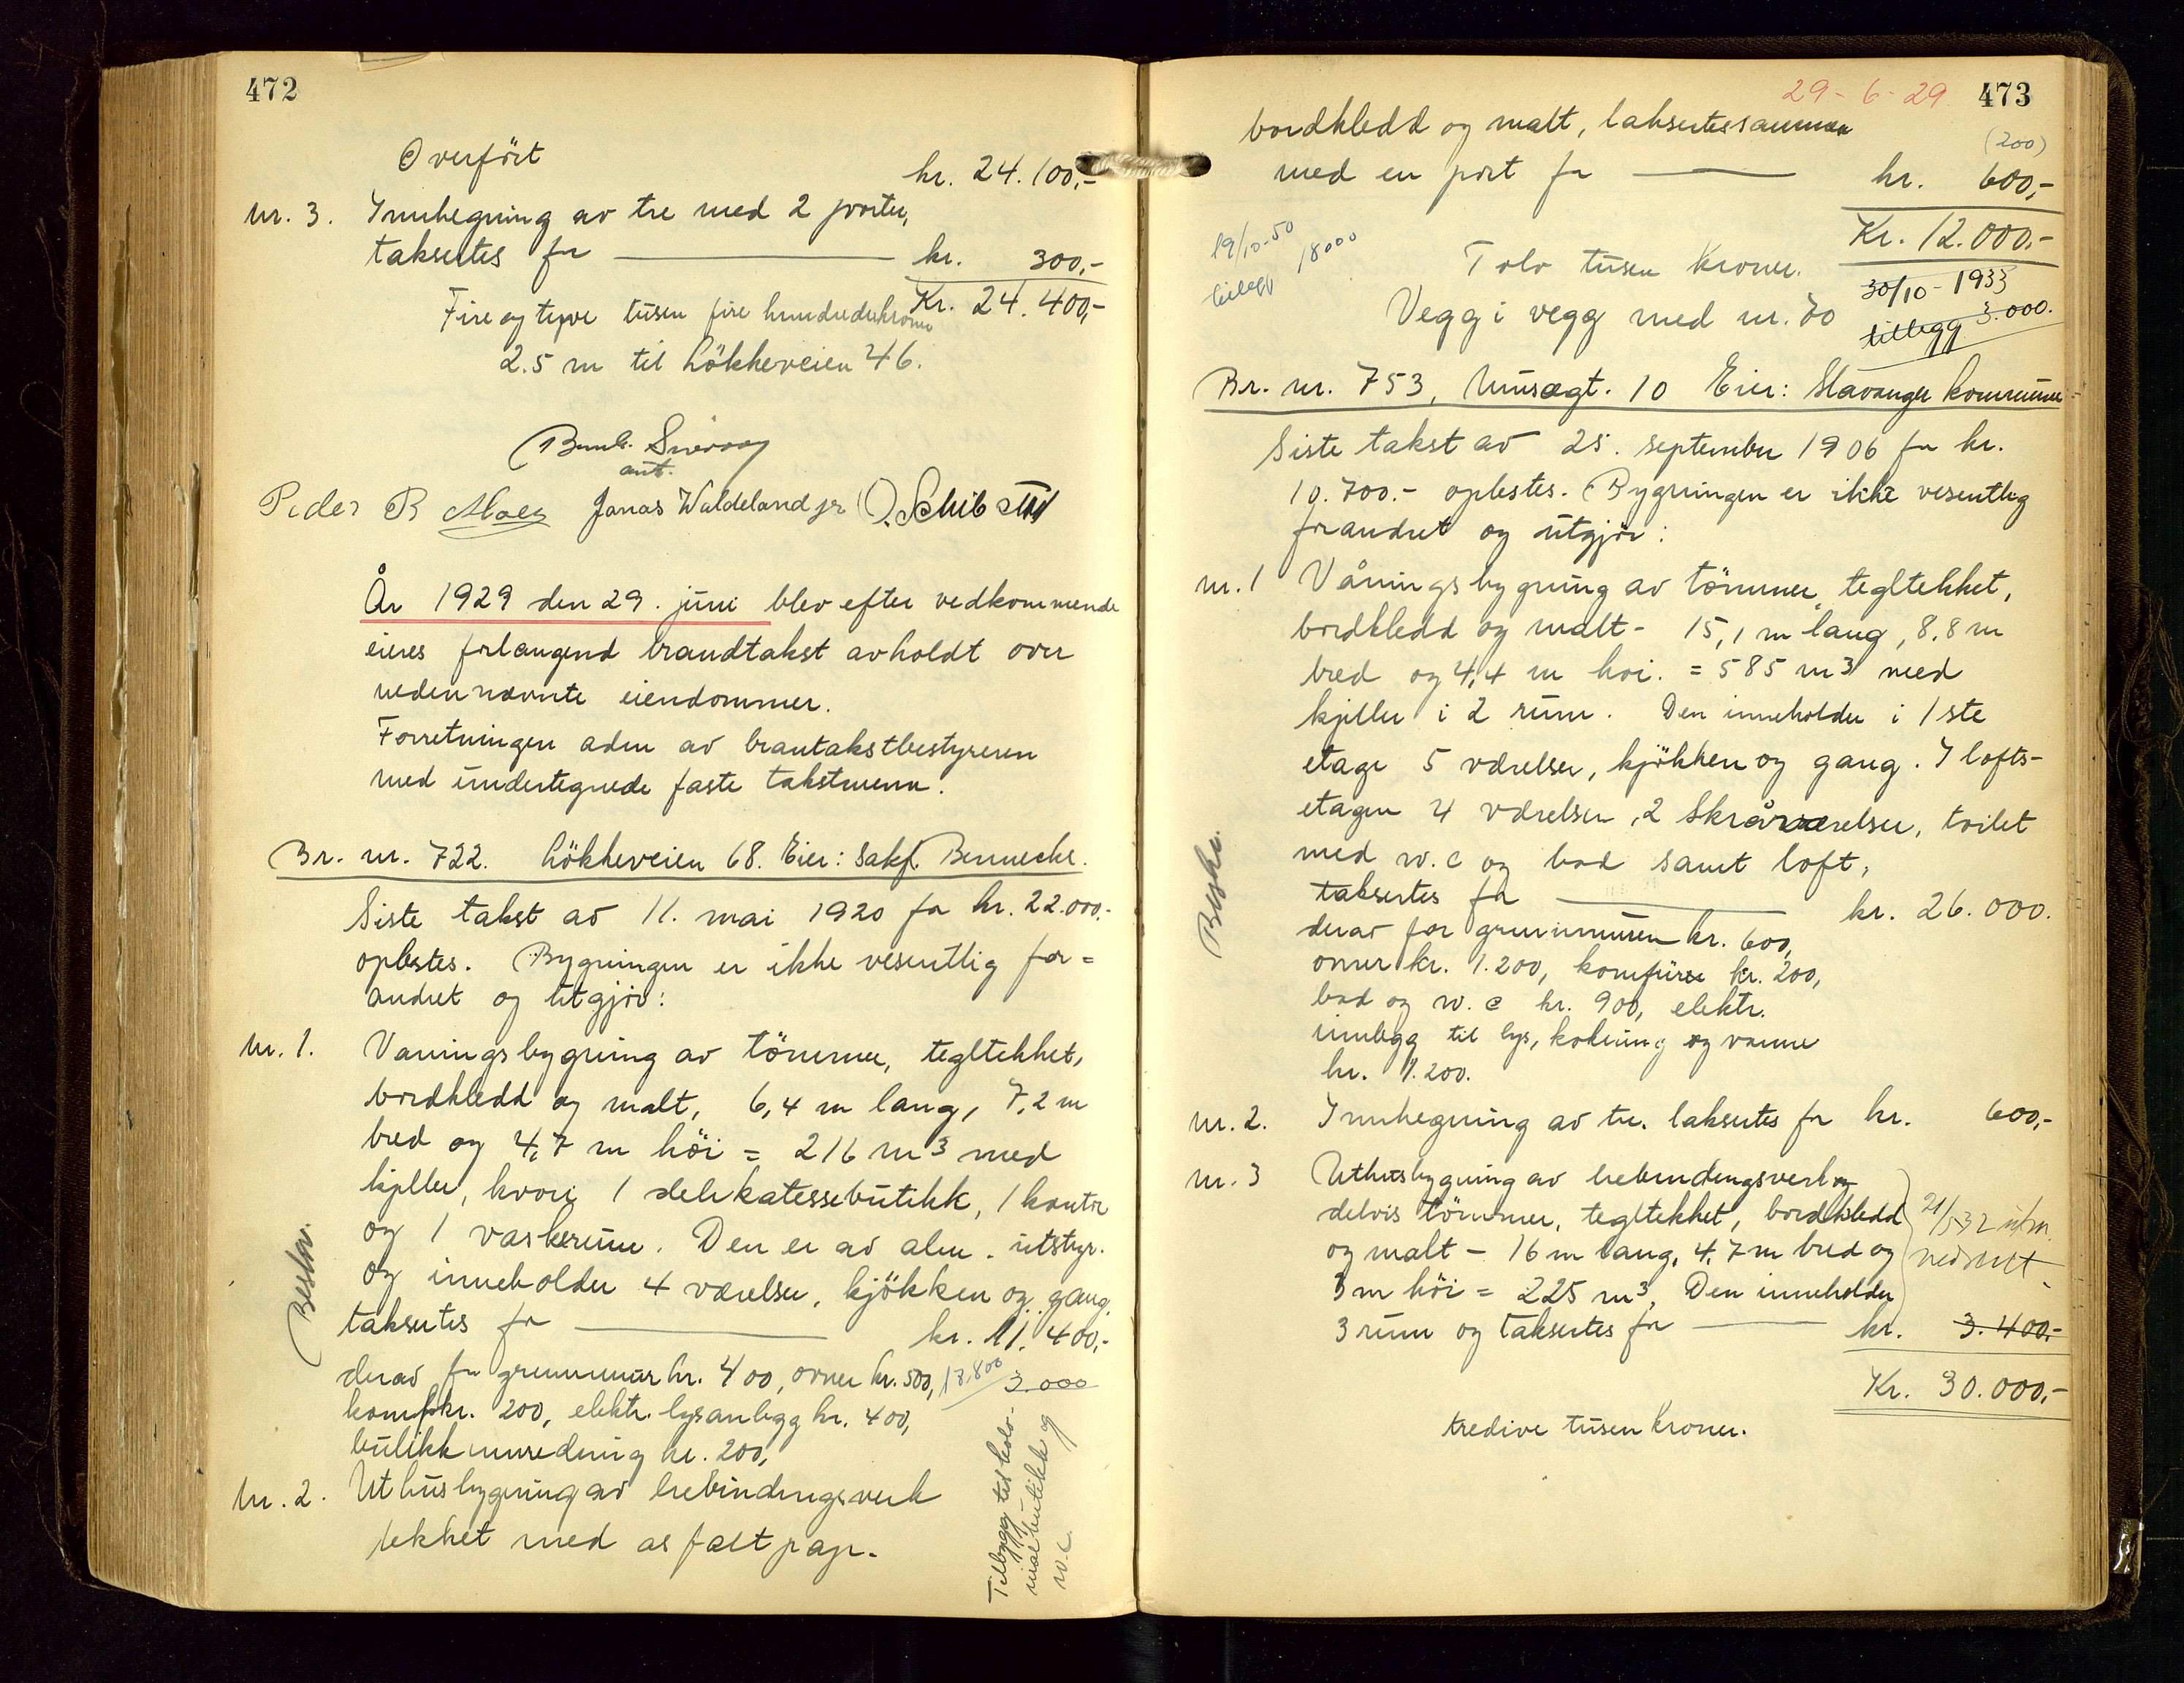 472
Overført
kr. 24.100,-
Nr. 3. Innhegning av tre med 2 porter,
taksertes for kr. 300,-
Kr. 24.400,-
Fire og tyve tusen fire hundredekroner
2.5 m til Lökkeveien 46.
ant.
Peder R Jonas Waldeland jr O. Schibsted
År 1929 den 29. juni blev efter vedkommende
eieres forlangend brandtakst avholdt over
nedennævnte eiendommer.
Forretningen aden av brantakstbestyreren
med undertegnede faste takstmenn.
Br. nr. 722. Lökkeveien 68. Eier: Sakf. Bennecke.
Siste takst av 11. mai 1920 for kr. 22.000,-
oplestes. Bygningen er ikke vesentlig for=
andret og utgjör:
Nr. 1. Vaningsbygning av tömmer, tegltekket,
bordkledd og malt, 6,4 m lang, 7,2 m
bred og 4,7 m höi = 216 m3 med
kjeller, hvori 1 delikatessebutikk, 1 kontor
og 1 vaskerum. Den er av alm. utstyr.
og inneholder 4 værelser, kjökken og gang.
taksertes for kr. 11.400,-
derav for grunnmur kr. 400, ovner kr. 500, 13.800 3.000
komf. kr. 200, elektr. lysanlegg kr. 400,
butikkinnredning kr. 200,
Nr. 2. Uthusbygning av bebindingsverk
tekket med asfaltpap.
Beskr.
Tilbygg til kolo-
nialbutikk og
w.c.
29-6-29 473
bordkledd og malt, taksertes sammen
med en port for kr. 600,-
(200)
Kr. 12.000,-
Tolv tusen kroner.
19/10-50 18000
tillegg
30/10-1933
tillegg 3.000.
Vegg i vegg med nr. 70
Br. nr. 753, Munsegt. 10 Eier: Stavanger kommune
Siste takst av 25. september 1906 for kr.
10.700.- oplestes. Bygningen er ikke vesentlig
forandret og utgjör:
nr. 1 Våningsbygning av tömmer, tegltekket,
bordkledd og malt - 15,1 m lang, 8.8 m
bred og 4,4 m hoi. = 585 m3 med
kjeller i 2 rum. Den inneholder i 1ste
etage 5 værelser, kjökken og gang. I lofts-
etagen 4 værelser, 2 skråværelser, toilet
med w.c og bad samt loft,
taksertes for kr. 26.000.
derav for grunnmuren kr. 600,
ovner kr. 1.200, komfürer kr. 200,
bad og w.c kr. 900, elektr.
innlegg til lys, kokning og varme
kr. 1.200.
Beskr.
nr. 2. Innhegning av tre. taksertes for kr. 600,-
nr. 3 Uthusbygning av bebindingsverk og
delvis tömmer, tegltekket, bordkledd
og malt - 16 m lang, 4,7 m bred og
3 m höi = 225 m3, Den inneholder
3 rum og taksertes for kr. 3.400,-
21/5-32
nedrevet
Kr. 30.000,-
tredive tusen kroner.